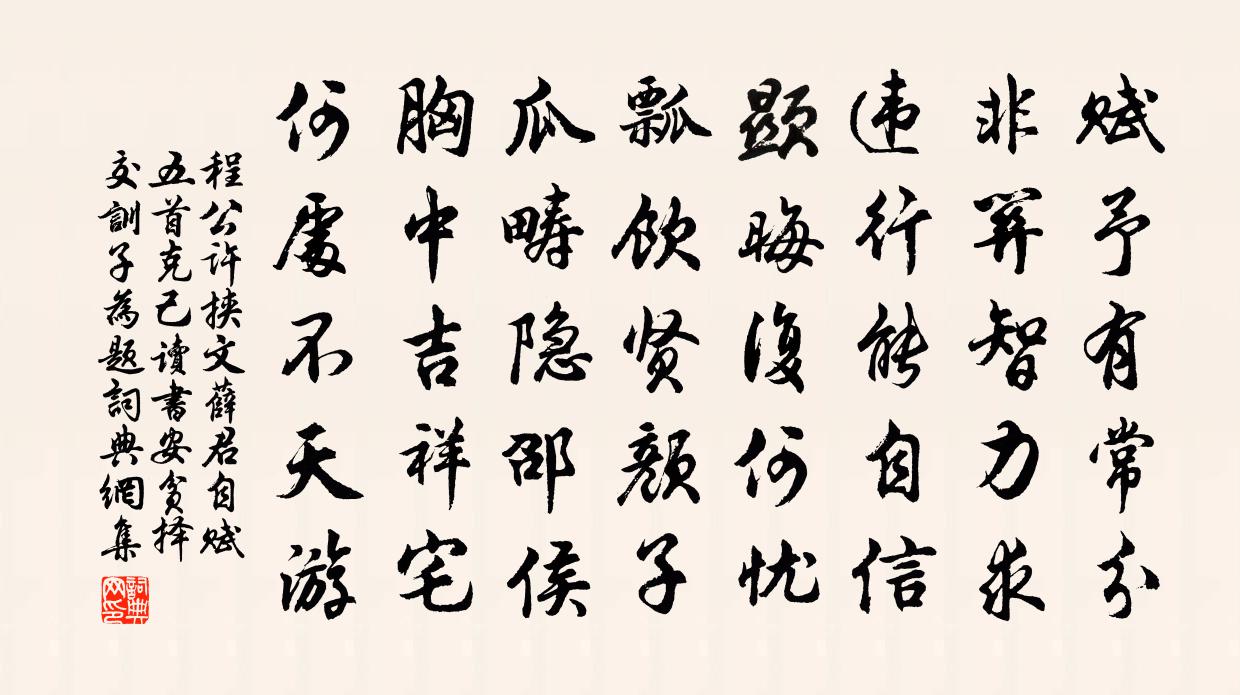 赋予有常分
非算智力求
违行能自信
显晦复何忧
瓢饮贤颜子
瓜畴隐邵侯
胸中吉祥宅
何处不天游
程公许挟文薛君自赋
五首克己读书安贫择
交训子为题词典网集
词典网印